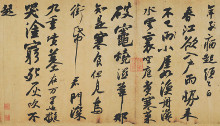 年子病起頭已白
春江欲入戶雨勢來
不已雨小屋如漁舟濛濛
水雲裏空庖煮寒菜
破竈燒濕葦那
知是寒食但見烏
銜帋
君門深
九重墳墓在万里也擬
哭塗窮死灰吹不
起